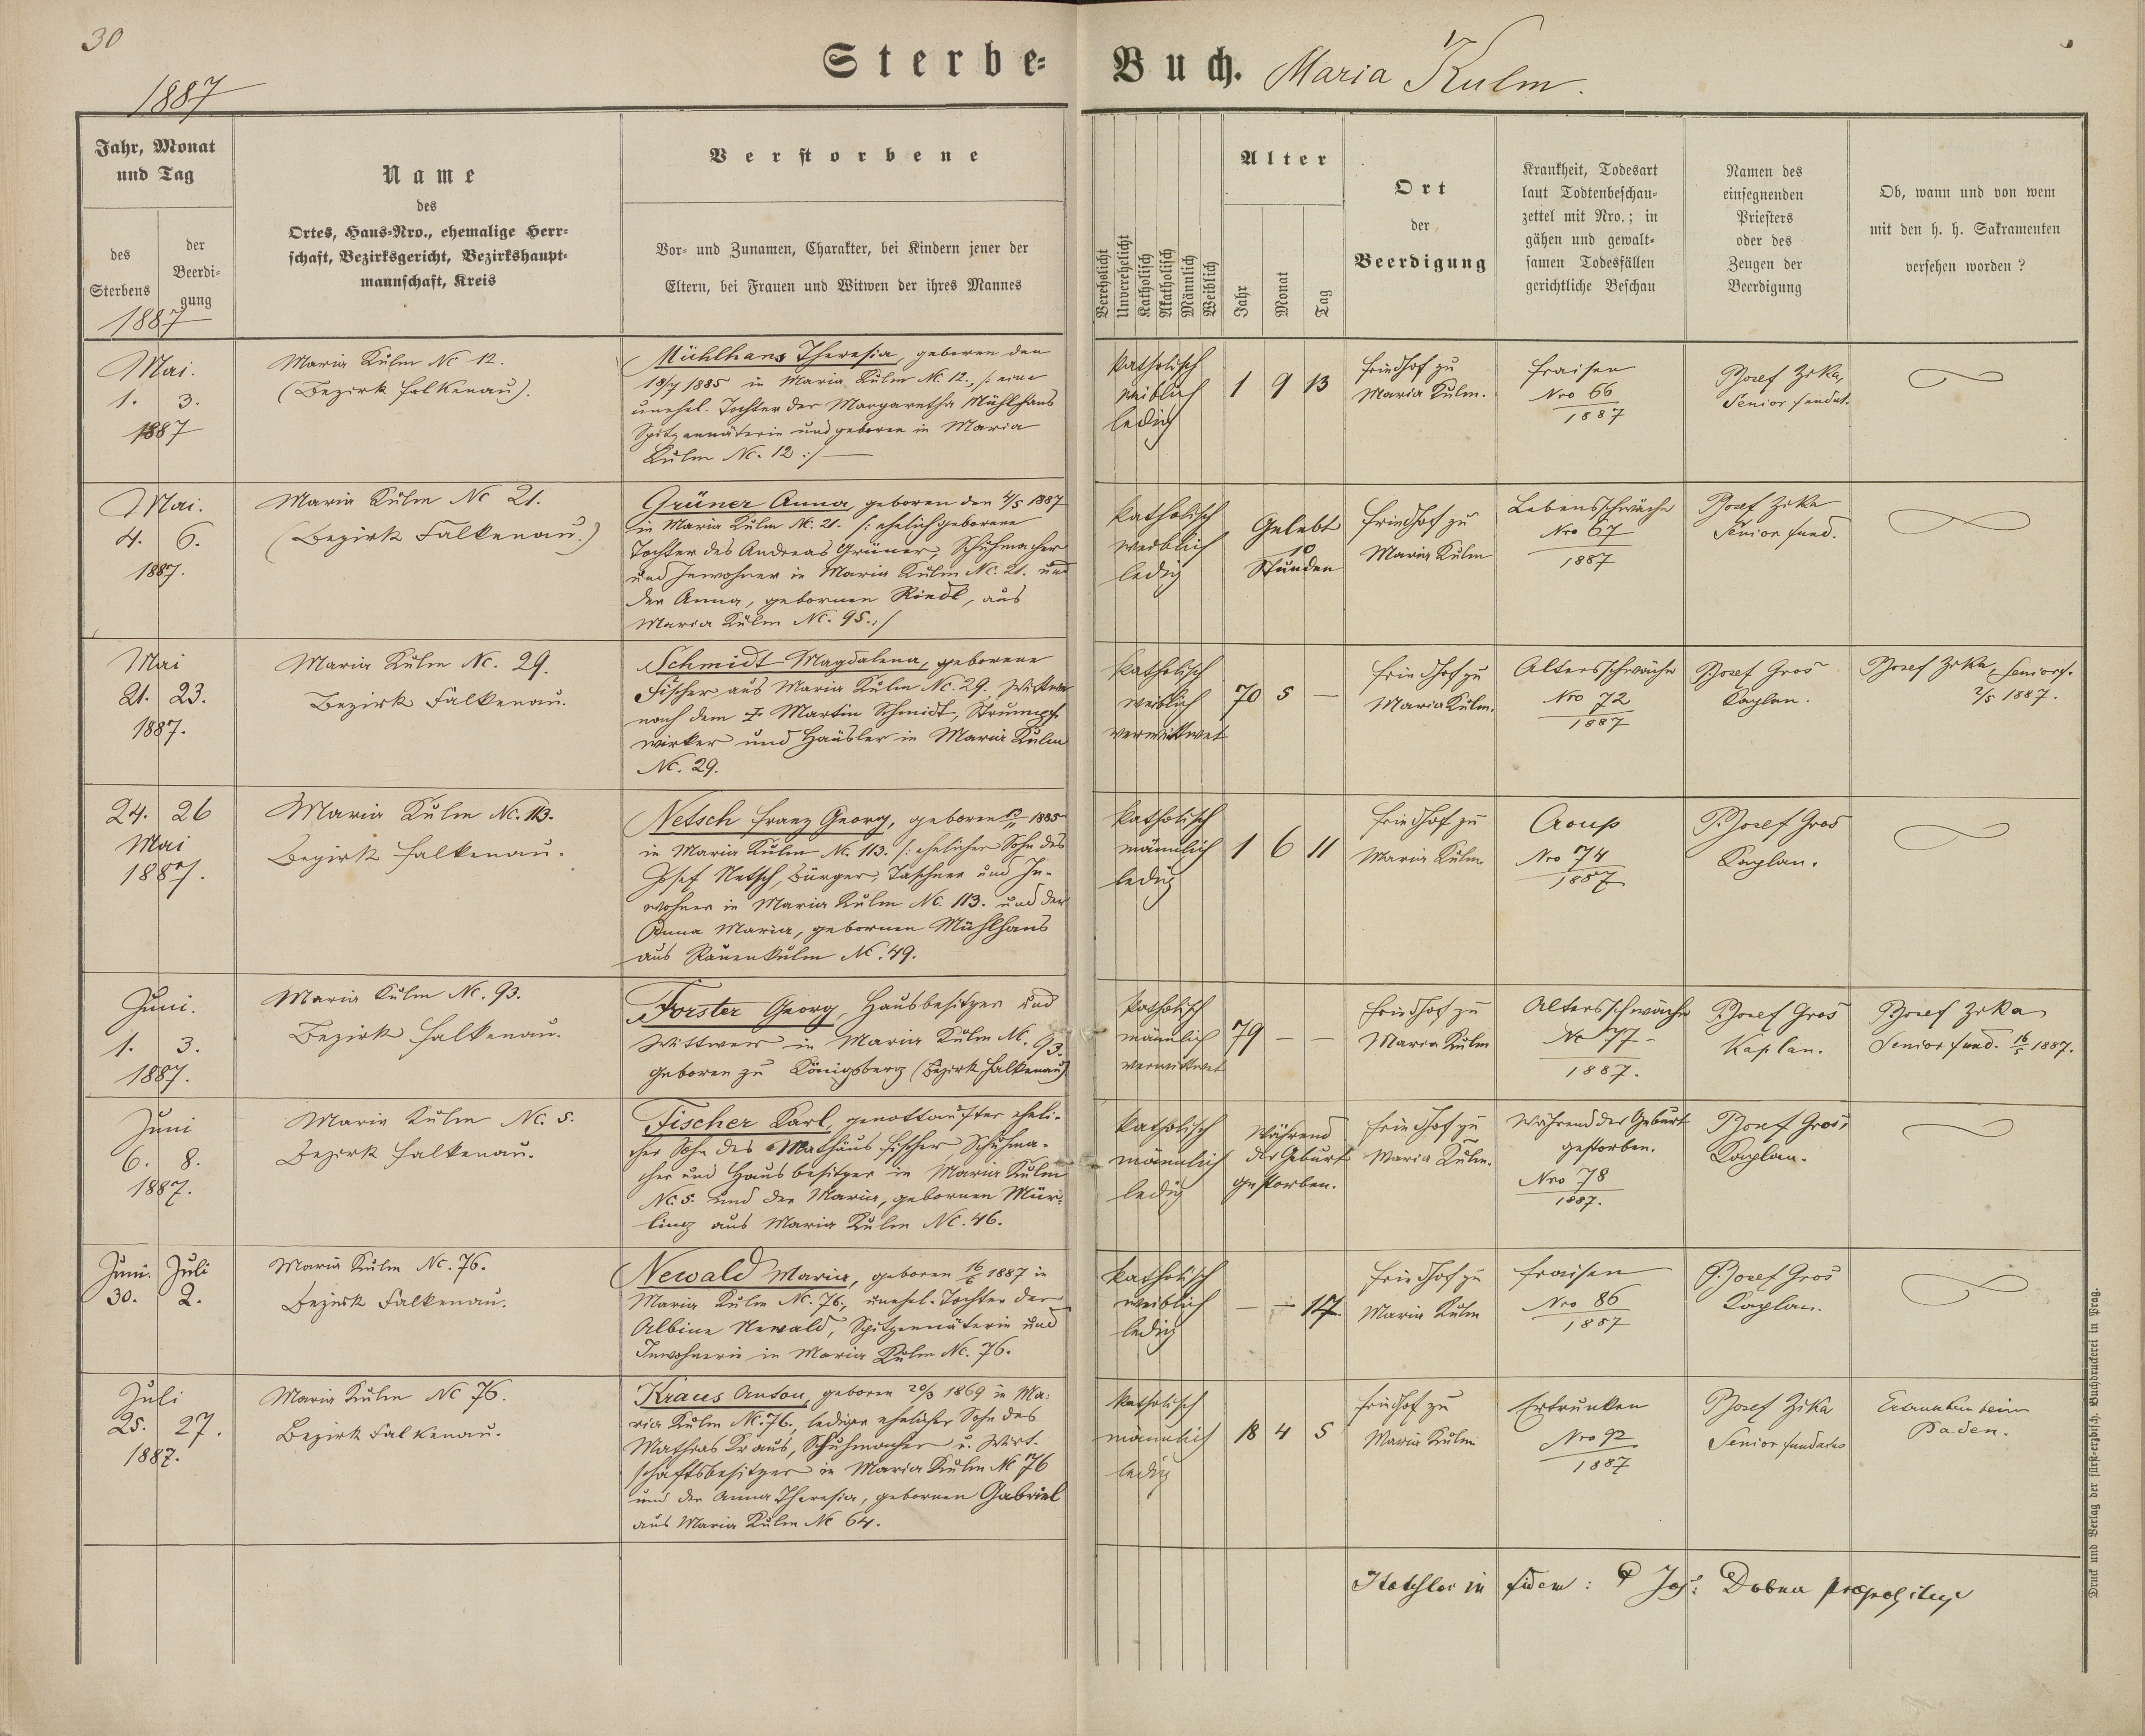 30
1887
Sterbe-Buch. Maria Kulm.
Jahr, Monat
und Tag
des
Sterbens
der
Beerdi-
gung
1887
Name
des
Ortes, Haus-Nro., ehemalige Herr-
schaft, Bezirksgericht, Bezirkshaupt-
mannschaft, Kreis
Verstorbene
Vor- und Zunamen, Charakter, bei Kindern jener der
Eltern, bei Frauen und Witwen der ihres Mannes
Verehelicht
Unverehelicht
Katholisch
Akatholisch
Männlich
Weiblich
Alter
Jahr
Monat
Tag
Ort
der
Beerdigung
Krankheit, Todesart
laut Todtenbeschau-
zettel mit Nro.; in
gähen und gewalt-
samen Todesfällen
gerichtliche Beschau
Namen des
einsegnenden
Priesters
oder des
Zeugen der
Beerdigung
Ob, wann und von wem
mit den h. h. Sakramenten
versehen worden?
Mai.
1. 3.
1887
Maria Kulm Nc 12.
(Bezirk Falkenau).
Mühlhans Theresia, geboren den
18/7 1885 in Maria Kulm Nc. 12., /: eine
unehel. Tochter der Margaretha Mühlhans
Spitzennäterin und geboren in Maria
Kulm Nc. 12 :/
katholisch
weiblich
ledig
1 9 13
Friedhof zu
Maria Kulm.
Fraisen
Nro 66
1887
P. Josef Zika,
Senior fundat.
Mai.
4. 6.
1887.
Maria Kulm Nc 21.
(Bezirk Falkenau.)
Grüner Anna, geboren den 4/5 1887
in Maria Kulm Nc. 21. /: ehelichgeborene
Tochter des Andreas Grüner, Schuhmacher
und Inwohner in Maria Kulm Nc. 21. und
der Anna, gebornen Riedl, aus
Maria Kulm Nc. 95. :/
katholisch
weiblich
ledig
Gelebt
10
Stunden
Friedhof zu
Maria Kulm
Lebensschwäche
Nro 67
1887
P. Josef Zika
Senior fund.
Mai
21. 23.
1887.
Maria Kulm Nc. 29.
Bezirk Falkenau.
Schmidt Magdalena, geborene
Fischer aus Maria Kulm Nc. 29. Wittwe
nach dem † Martin Schmidt, Strumpf-
wirker und Häusler in Maria Kulm
Nc. 29.
katholisch
weiblich
verwittwet
70 5 —
Friedhof zu
Maria Kulm.
Altersschwäche
Nro 72
1887
P. Josef Gros
Kaplan.
P. Josef Zika, Senior f.
2/5 1887.
24. 26
Mai
1887.
Maria Kulm Nc. 113.
Bezirk Falkenau.
Netsch Franz Georg, geboren 13/11 1885
in Maria Kulm Nc. 113. /: ehelicher Sohn des
Josef Netsch, Bürger, Taschner und In-
wohner in Maria Kulm Nc. 113. und der
Anna Maria, gebornen Mühlhans
aus Rauenkulm Nc. 49.
katholisch
männlich
ledig
1 6 11
Friedhof zu
Maria Kulm
Croup
Nro 74
1887
P. Josef Gros
Kaplan.
Juni.
1. 3.
1887.
Maria Kulm Nc. 93.
Bezirk Falkenau.
Forster Georg, Hausbesitzer und
Wittwer in Maria Kulm Nc. 93.
geboren zu Königsberg (Bezirk Falkenau)
katholisch
männlich
verwittwet
79 — —
Friedhof zu
Maria Kulm
Altersschwäche
Nc 77
1887.
P. Josef Gros
Kaplan.
P. Josef Zika
Senior fund. 16/5 1887.
Juni
6. 8.
1887.
Maria Kulm Nc. 5.
Bezirk Falkenau.
Fischer Karl, genottaufter eheli-
cher Sohn des Mathäus Fischer, Schuhma-
cher und Hausbesitzer in Maria Kulm
Nc. 5. und der Maria, gebornen Mür-
ling aus Maria Kulm Nc. 46.
katholisch
männlich
ledig
Während
der Geburt
gestorben.
Friedhof zu
Maria Kulm.
Während der Geburt
gestorben.
Nro 78
1887.
P. Josef Gros,
Kaplan.
Juni. Juli
30. 2.
Maria Kulm Nc. 76.
Bezirk Falkenau.
Newald Maria, geboren 16/6 1887 in
Maria Kulm Nc. 76., unehel. Tochter der
Albine Newald, Spitzennäterin und
Inwohnerin in Maria Kulm Nc. 76.
katholisch
weiblich
ledig
— — 14
Friedhof zu
Maria Kulm
Fraisen
Nro 86
1887
P. Josef Gros
Kaplan.
Juli
25. 27.
1887.
Maria Kulm Nc 76.
Bezirk Falkenau.
Kraus Anton, geboren 20/3 1869 in Ma-
ria Kulm Nc. 76., lediger ehelicher Sohn des
Mathias Kraus, Schuhmacher u. Wirt-
schaftsbesitzer in Maria Kulm Nc 76
und der Anna Theresia, gebornen Gabriel
aus Maria Kulm Nc 64.
katholisch
männlich
ledig
18 4 5
Friedhof zu
Maria Kulm
Ertrunken
Nro 92
1887
P. Josef Zika
Senior fundatus
Ertrunken beim
Baden.
in fidem: P Jos: Dobner
Druck und Verlag der fürst-erzbisch. Buchdruckerei in Prag.